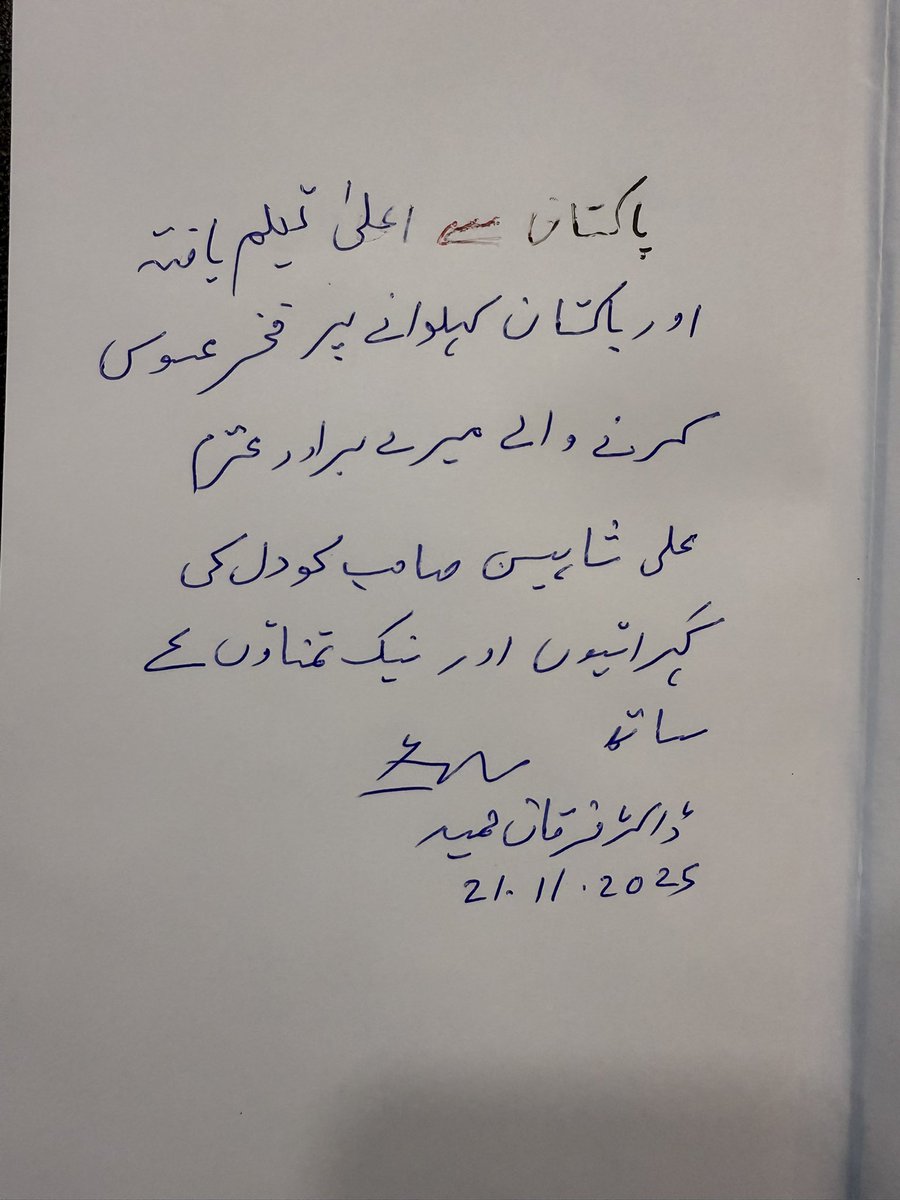 پاکستان سے اعلیٰ تعلیم یافتہ
اور پاکستان کہلوانے پر فخر محسوس
کرنے والے میرے برادر محترم
علی شاہین صاحب کو دل کی
گہرائیوں اور نیک تمناؤں کے
ساتھ
ڈاکٹر فرقان حمید
21.11.2025